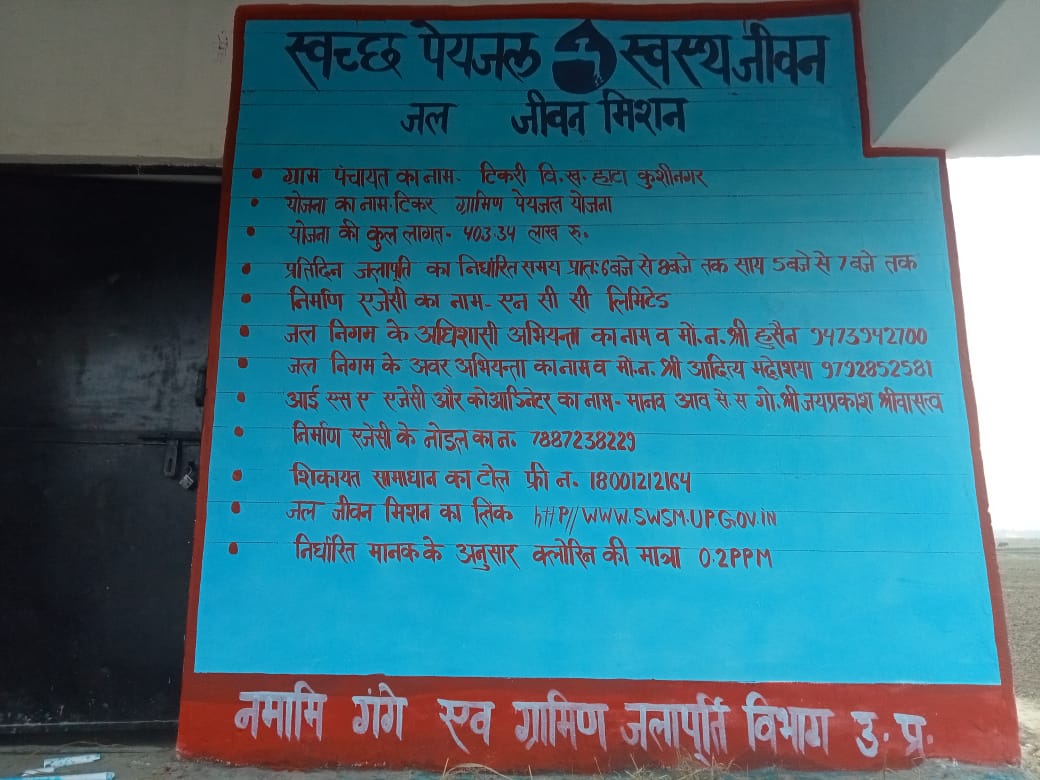 स्वच्छ पेयजल स्वस्थ जीवन
जल जीवन मिशन
• ग्राम पंचायत का नाम- टिकरी वि.ख. हाटा कुशीनगर
• योजना का नाम-टिकर ग्रामिण पेयजल योजना
• योजना की कुल लागत- 403.34 लाख रु.
• प्रतिदिन जलापूर्ति का निर्धारित समय प्रातः 6 बजे से 8 बजे तक साय 5 बजे से 7 बजे तक
• निर्माण एजेंसी का नाम- एन सी सी लिमिटेड
• जल निगम के अधिशासी अभियन्ता का नाम व मों.न. श्री हुसैन 9473942700
• जल निगम के अवर अभियन्ता का नाम व मो.न. श्री आदित्य मद्धेशिया 9792852581
• आई एस ए एजेंसी और कोआर्डिनेटर का नाम- मानव आव से.स गो. श्री जयप्रकाश श्रीवास्तव
• निर्माण एजेंसी के नोडल का न. 7887238229
• शिकायत सामाधान का टोल फ्री न. 18001212164
• जल जीवन मिशन का लिंक http//www.SWSM.UP.GOV.iN
• निर्धारित मानक के अनुसार क्लोरिन की मात्रा 0.2PPM
नमामि गंगे एव ग्रामिण जलापूर्ति विभाग उ.प्र.